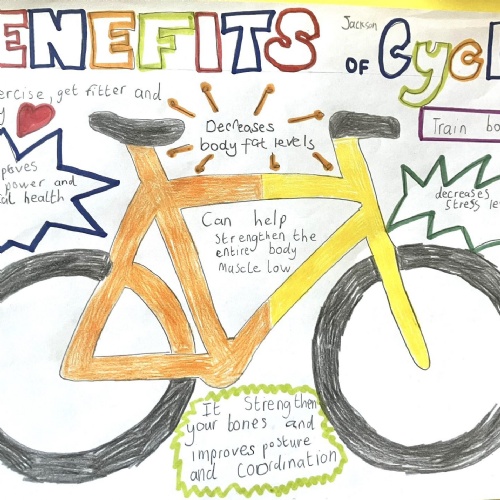 ENEFITS
Jackson
OF Cyc
ercise, get fitter and
y
Decreases
body fat levels
Train bo
power and
health
decreases
stress le
Can help
strengthen the
entire body
Muscle low
It Strengthen
your bones and
improves posture
and Coordination